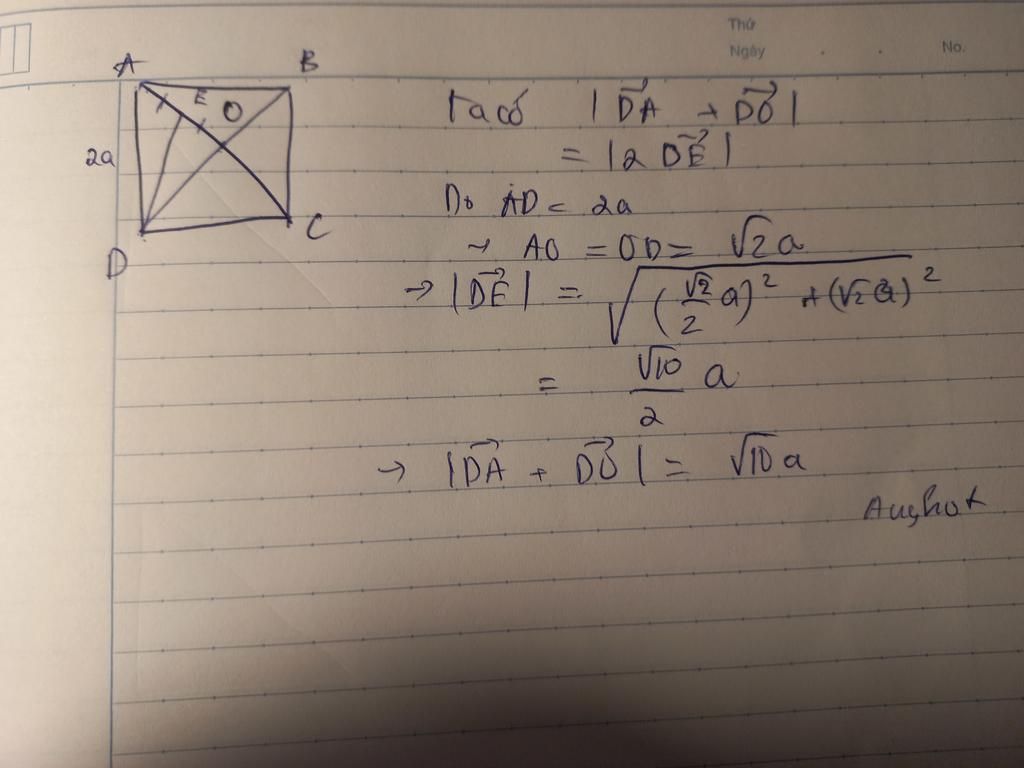 Thứ
Ngày . . No.
A B
E O
2a
D C
Ta có |DA + DO|
= |2 DE|
Do AD = 2a
→ AO = OD = √2 a
→ |DE| = √((√2/2 a)² + (√2 a)²)
= √10/2 a
→ |DA + DO| = √10 a